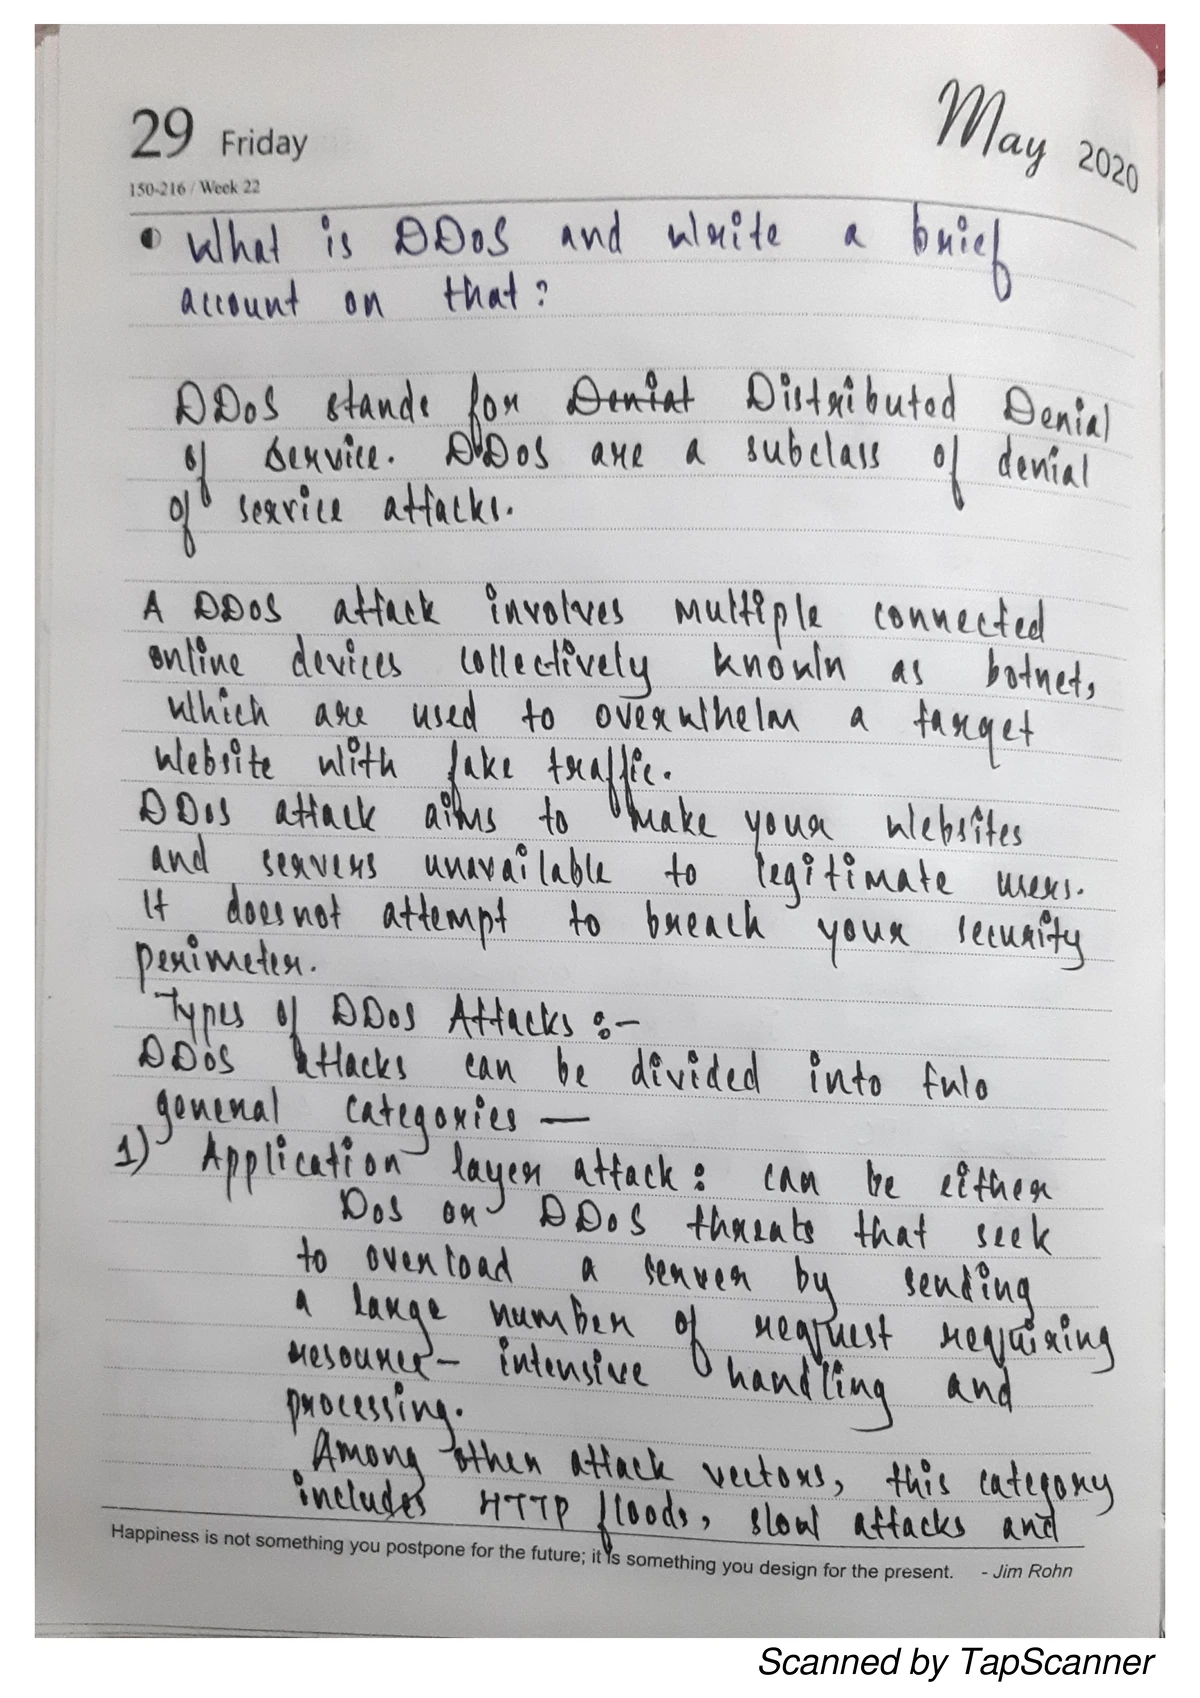 29 Friday
May 2020
150-216 / Week 22
What is DDoS and write a brief
account on that?
DDoS stands for Denial Distributed Denial
of Service. DDoS are a subclass of denial
of service attacks.
A DDoS attack involves multiple connected
online devices collectively known as botnet,
which are used to overwhelm a target
website with fake traffic.
DDoS attack aims to make your websites
and servers unavailable to legitimate users.
It doesnot attempt to breach your security
perimeter.
Types of DDoS Attacks :-
DDoS attacks can be divided into two
general categories —
1) Application layer attack : can be either
DoS or DDoS threats that seek
to overload a server by sending
a large number of request requiring
resource - intensive handling and
processing.
Among other attack vectors, this category
includes HTTP floods, slow attacks and
Happiness is not something you postpone for the future; it is something you design for the present. - Jim Rohn
Scanned by TapScanner